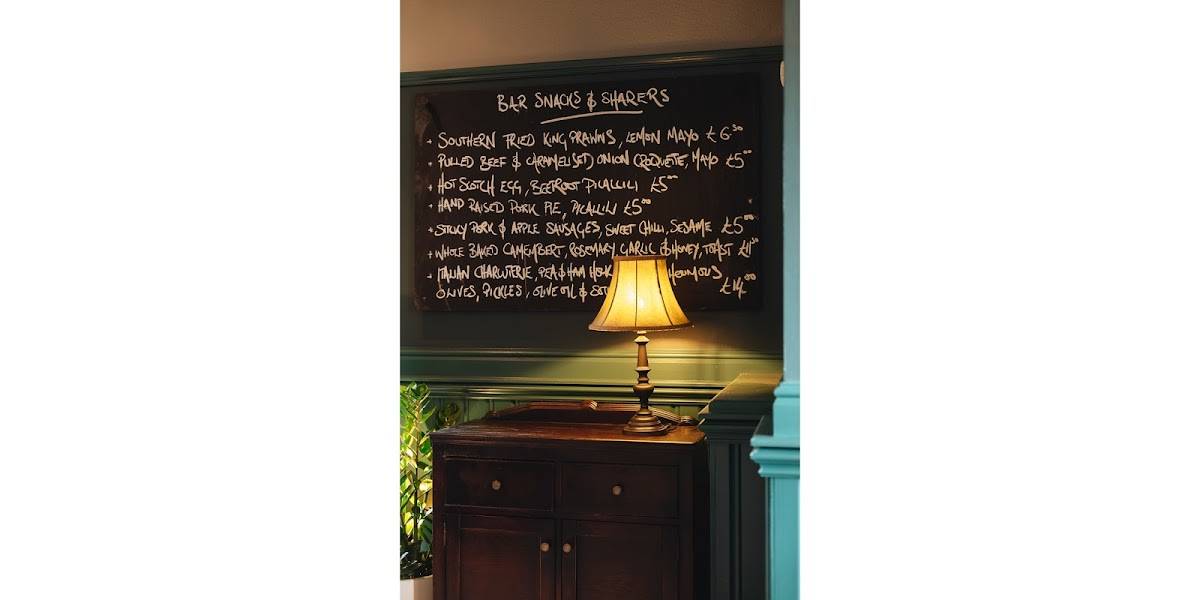 BAR SNACKS & SHARERS
SOUTHERN FRIED KING PRAWNS, LEMON MAYO £6.50
PULLED BEEF & CARAMELISED ONION CROQUETTE, MAYO £5.00
HOT SCOTCH EGG, BEETROOT PICALLILI £5.00
HAND RAISED PORK PIE, PICALLILI £5.00
STICKY PORK & APPLE SAUSAGES, SWEET CHILLI, SESAME £5.00
WHOLE BAKED CAMEMBERT, ROSEMARY, GARLIC & HONEY, TOAST
ITALIAN CHARCUTERIE, PEA & HAM HOUMOUS
OLIVES, PICKLES, OLIVE OIL & £14.00